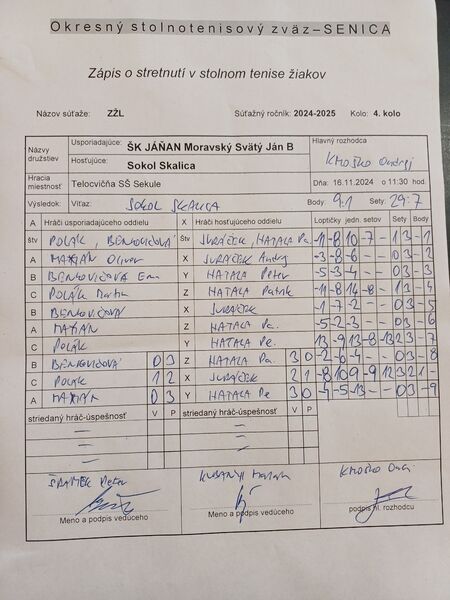 Okresný stolnotenisový zväz–SENICA
Zápis o stretnutí v stolnom tenise žiakov
Názov súťaže: ZŽL Súťažný ročník: 2024-2025 Kolo: 4. kolo
Názvy družstiev Usporiadajúce: ŠK JÁŇAN Moravský Svätý Ján B Hlavný rozhodca
Hosťujúce: Sokol Skalica KMOŠKO Ondrej
Hracia miestnosť Telocvičňa SŠ Sekule Dňa: 16.11.2024 o 11:30 hod.
Výsledok: Víťaz: SOKOL SKALICA Body 9:1 Sety 29:7
A Hráči usporiadajúceho oddielu X Hráči hosťujúceho oddielu Loptičky jedn. setov Sety Body
štv POLÁK, BENKOVIČOVÁ štv JURÁČEK, HATALA Pa. -11 -8 10 -7 - 1 3 - 1
A MAXIÁN Oliver X JURÁČEK Andrej -3 -8 -6 - - 0 3 - 2
B BENKOVIČOVÁ Ema Y HATALA Peter -5 -3 -4 - - 0 3 - 3
C POLÁK Martin Z HATALA Patrik -11 -8 14 -8 - 1 3 - 4
B BENKOVIČOVÁ X JURÁČEK -1 -7 -2 - - 0 3 - 5
A MAXIÁN Z HATALA Pa. -5 -2 -3 - - 0 3 - 6
C POLÁK Y HATALA Pe. 13 -9 13 -8 -13 2 3 - 7
B BENKOVIČOVÁ 0 3 Z HATALA Pa. 3 0 -2 -6 -4 - - 0 3 - 8
C POLÁK 1 2 X JURÁČEK 2 1 -8 10 9 -9 12 3 2 1 -
A MAXIÁN 0 3 Y HATALA Pe 3 0 -4 -5 -13 - - 0 3 - 9
striedaný hráč-úspešnosť V P striedaný hráč-úspešnosť V P
KMOŠKO Ondrej
Meno a podpis vedúceho Meno a podpis vedúceho podpis hl. rozhodcu